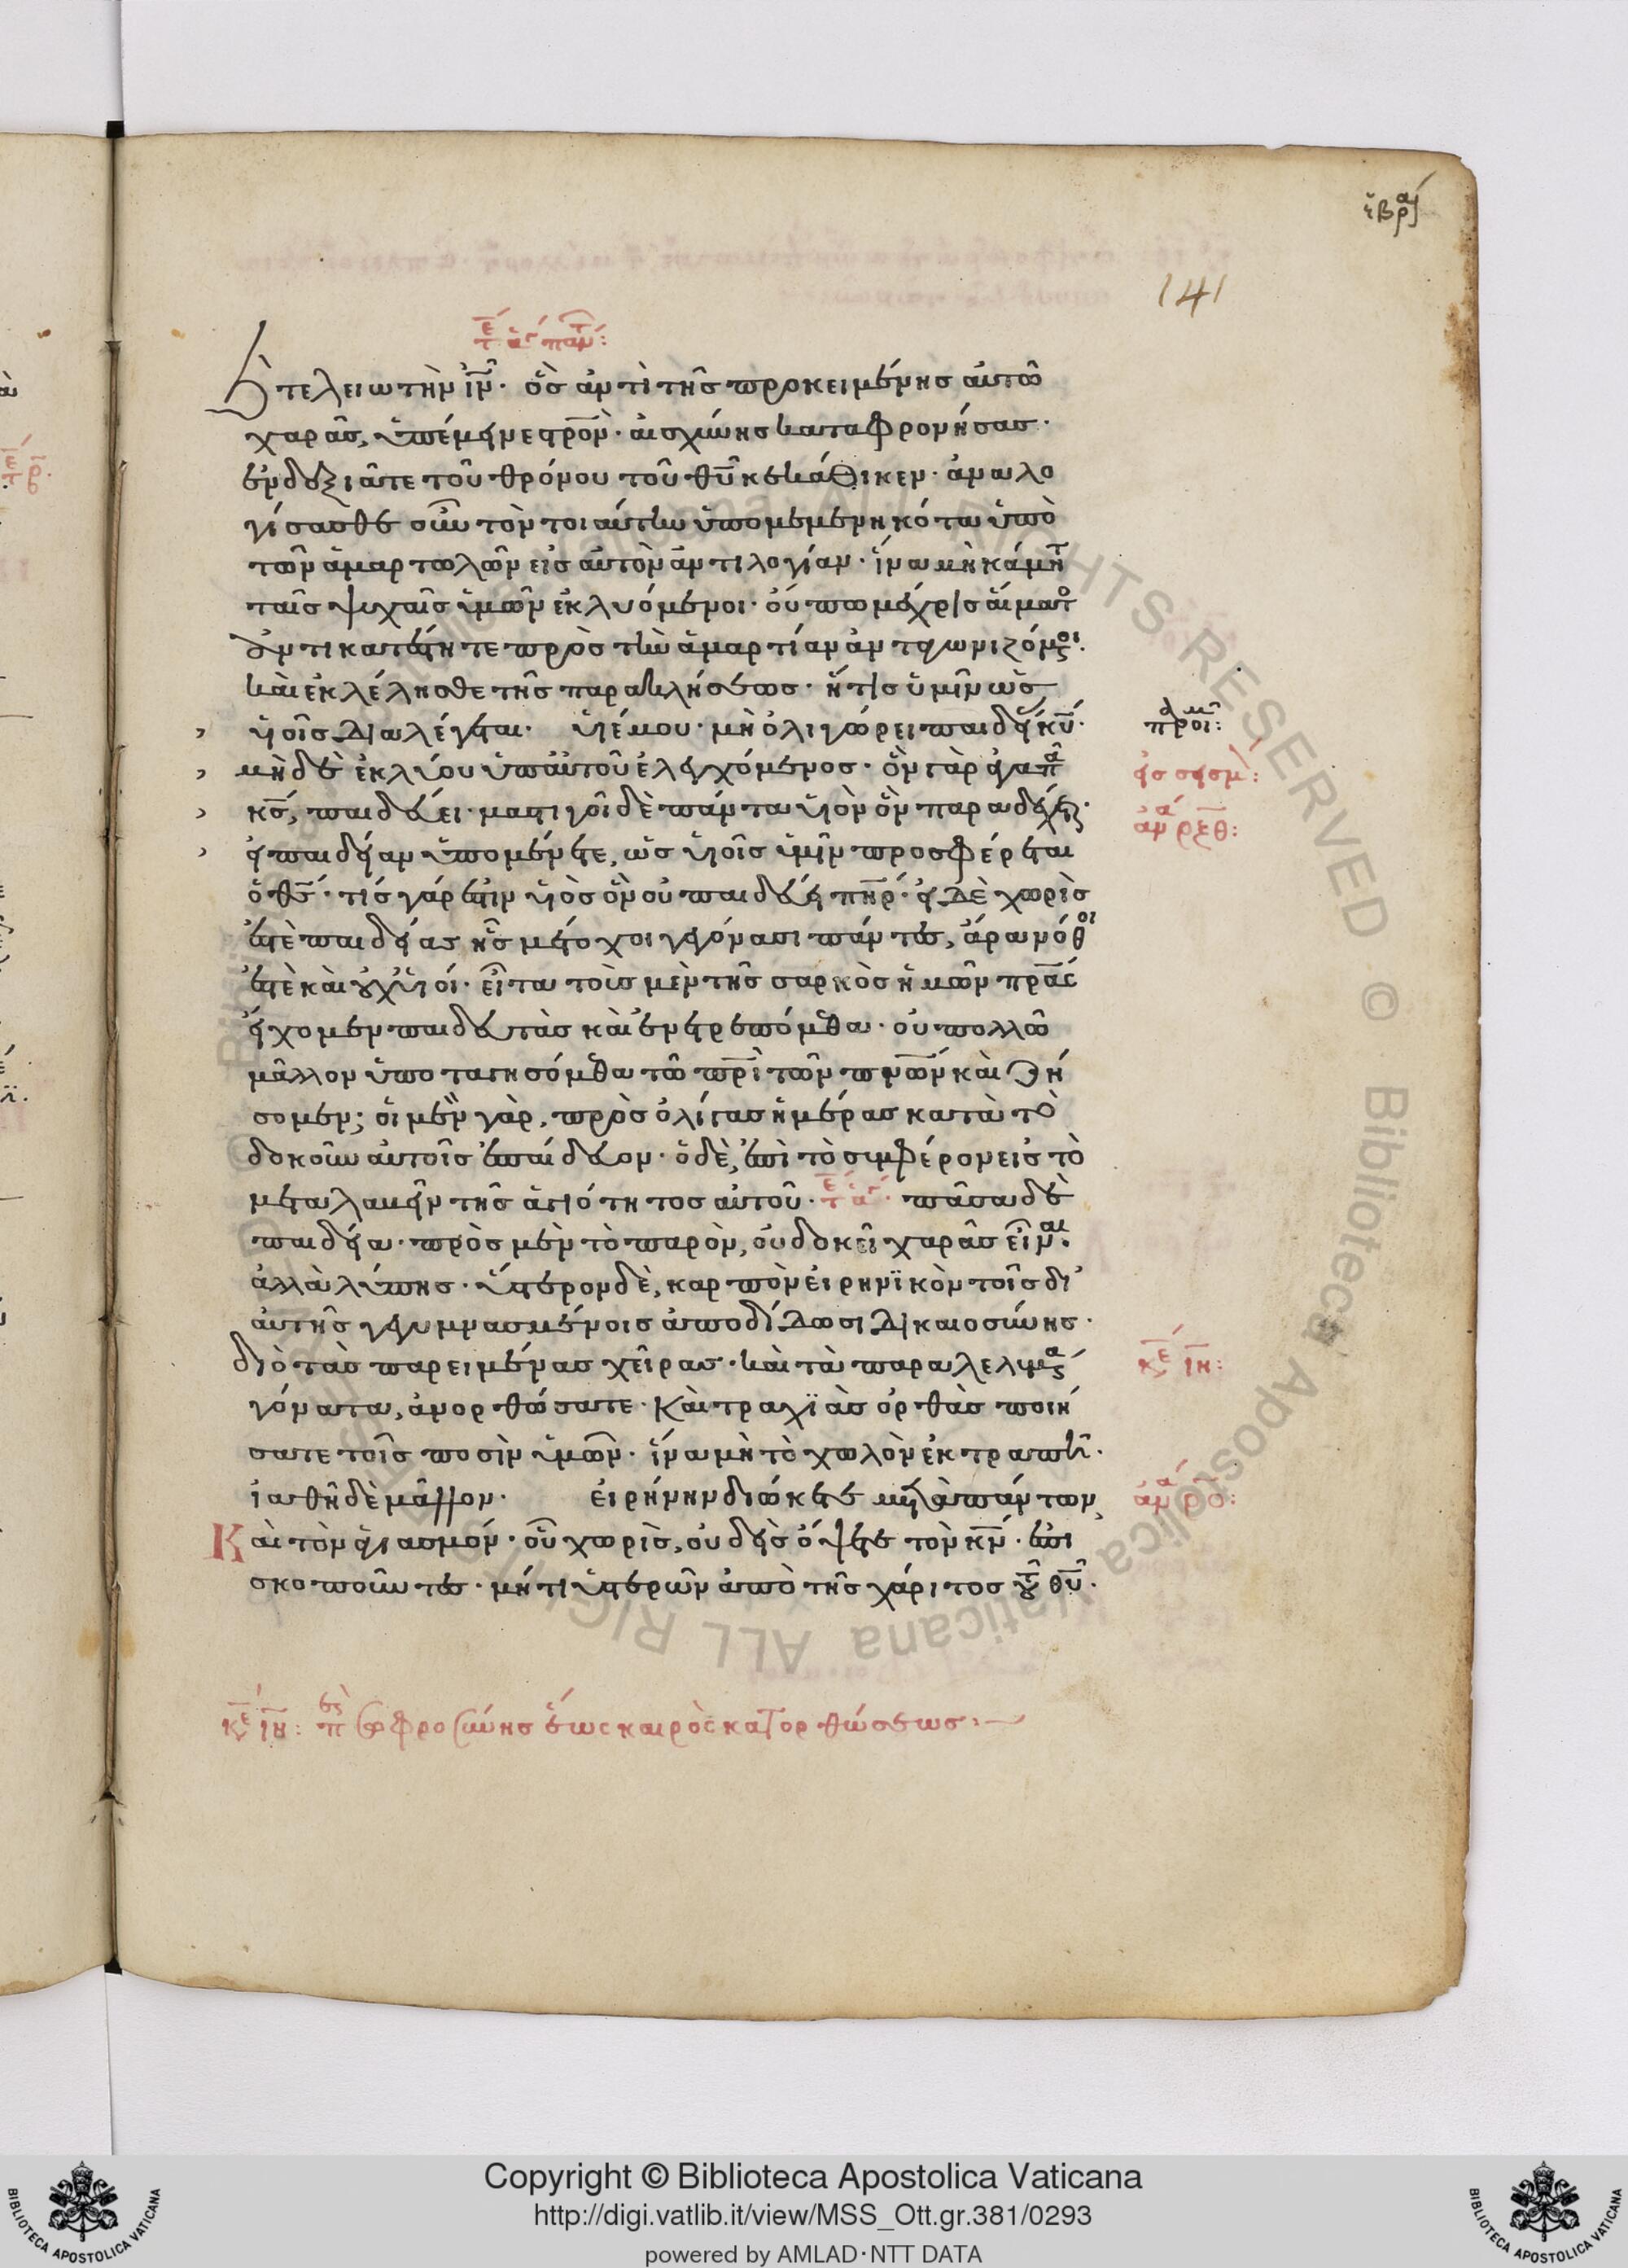 ἑβρ
141
τε ἁγ παντ:
τελειωτὴν ιν̅· ὃς ἀντὶ τῆς προκειμένης αὐτῶ
χαρᾶς, ὑπέμεινε στρο̅ν· αἰσχύνης καταφρονήσας·
ἐν δεξιᾶ τε τοῦ θρόνου τοῦ θυ̅ κεκάθικεν· ἀναλο
γίσασθε οὖν τὸν τοιαύτην ὑπομεμενηκότα ὑπὸ
τῶν ἁμαρτωλῶν εἰς αὐτὸν ἀντιλογίαν· ἵνα μὴ κάμητ
ταῖς ψυχαῖς ὑμῶν ἐκλυόμενοι· οὔπω μέχρις αἵματο
ἀντικατέστητε πρὸς τὴν ἁμαρτίαν ἀνταγωνιζόμενοι·
καὶ ἐκλέλησθε τῆς παρακλήσεως· ἥτις ὑμῖν ὡς
υἱοῖς διαλέγεται· υἱέ μου· μὴ ὀλιγώρει παιδείας κυ̅·
μὴ δὲ ἐκλύου ὑπ' αὐτοῦ ἐλεγχόμενος· ὃν γὰρ ἀγαπᾶ
κς̅, παιδεύει· μαστιγοῖ δὲ πάντα υἱὸν ὃν παραδέχεται·
εἰ παιδείαν ὑπομένετε, ὡς υἱοῖς ὑμῖν προσφέρεται
ὁ θς̅· τίς γάρ ἐστιν υἱὸς ὃν οὐ παιδεύει πη̅ρ· εἰ δὲ χωρὶς
ἐστὲ παιδείας ἧς μέτοχοι γεγόνασι πάντες, ἄρα νόθοι
ἐστὲ καὶ οὐχ υἱοί· εἶτα τοὺς μὲν τῆς σαρκὸς ἡμῶν πρα̅ς
εἴχομεν παιδευτὰς καὶ ἐνετρεπόμεθα· οὐ πολλῶ
μᾶλλον ὑποταγησόμεθα τῶ πρι̅ τῶν πνω̅ν καὶ ζή
σομεν; οἱ μὲν γὰρ, πρὸς ὀλίγας ἡμέρας κατὰ τὸ
δοκοῦν αὐτοῖς ἐπαίδευον· ὁ δὲ, ἐπὶ τὸ συμφέρον εἰς τὸ
μεταλαβεῖν τῆς ἁγιότητος αὐτοῦ· τε ἁγ· πᾶσα δὲ
παιδεία· πρὸς μὲν τὸ παρὸν, οὐ δοκεῖ χαρᾶς εἶναι·
ἀλλὰ λύπης· ὕστερον δὲ, καρπὸν εἰρηνϊκὸν τοῖς δι'
αὐτῆς γεγυμνασμένοις ἀποδίδωσι δικαιοσύνης·
διὸ τὰς παρειμένας χεῖρας· καὶ τὰ παραλελυμένα
γόνατα, ἀνορθώσατε· Καὶ τροχϊὰς ὀρθὰς ποιή
σατε τοῖς ποσὶν ὑμῶν· ἵνα μὴ τὸ χωλὸν ἐκτραπῆ·
ἰαθῆ δὲ μᾶλλον· εἰρήνην διώκετε μετὰ πάντων,
Καὶ τὸν ἁγιασμόν· οὗ χωρὶς, οὐδεὶς ὄψεται τὸν κν̅· ἐπι
σκοποῦντες· μή τις ὑστερῶν ἀπὸ τῆς χάριτος τοῦ θυ̅·
παροιμ:
ἀν ρξθ:
κε ιη:
ἀν ρο:
κε ιη: περὶ σωφροσύνης ἕως καιρὸς κατορθώσεως:
Copyright © Biblioteca Apostolica Vaticana
http://digi.vatlib.it/view/MSS_Ott.gr.381/0293
powered by AMLAD·NTT DATA